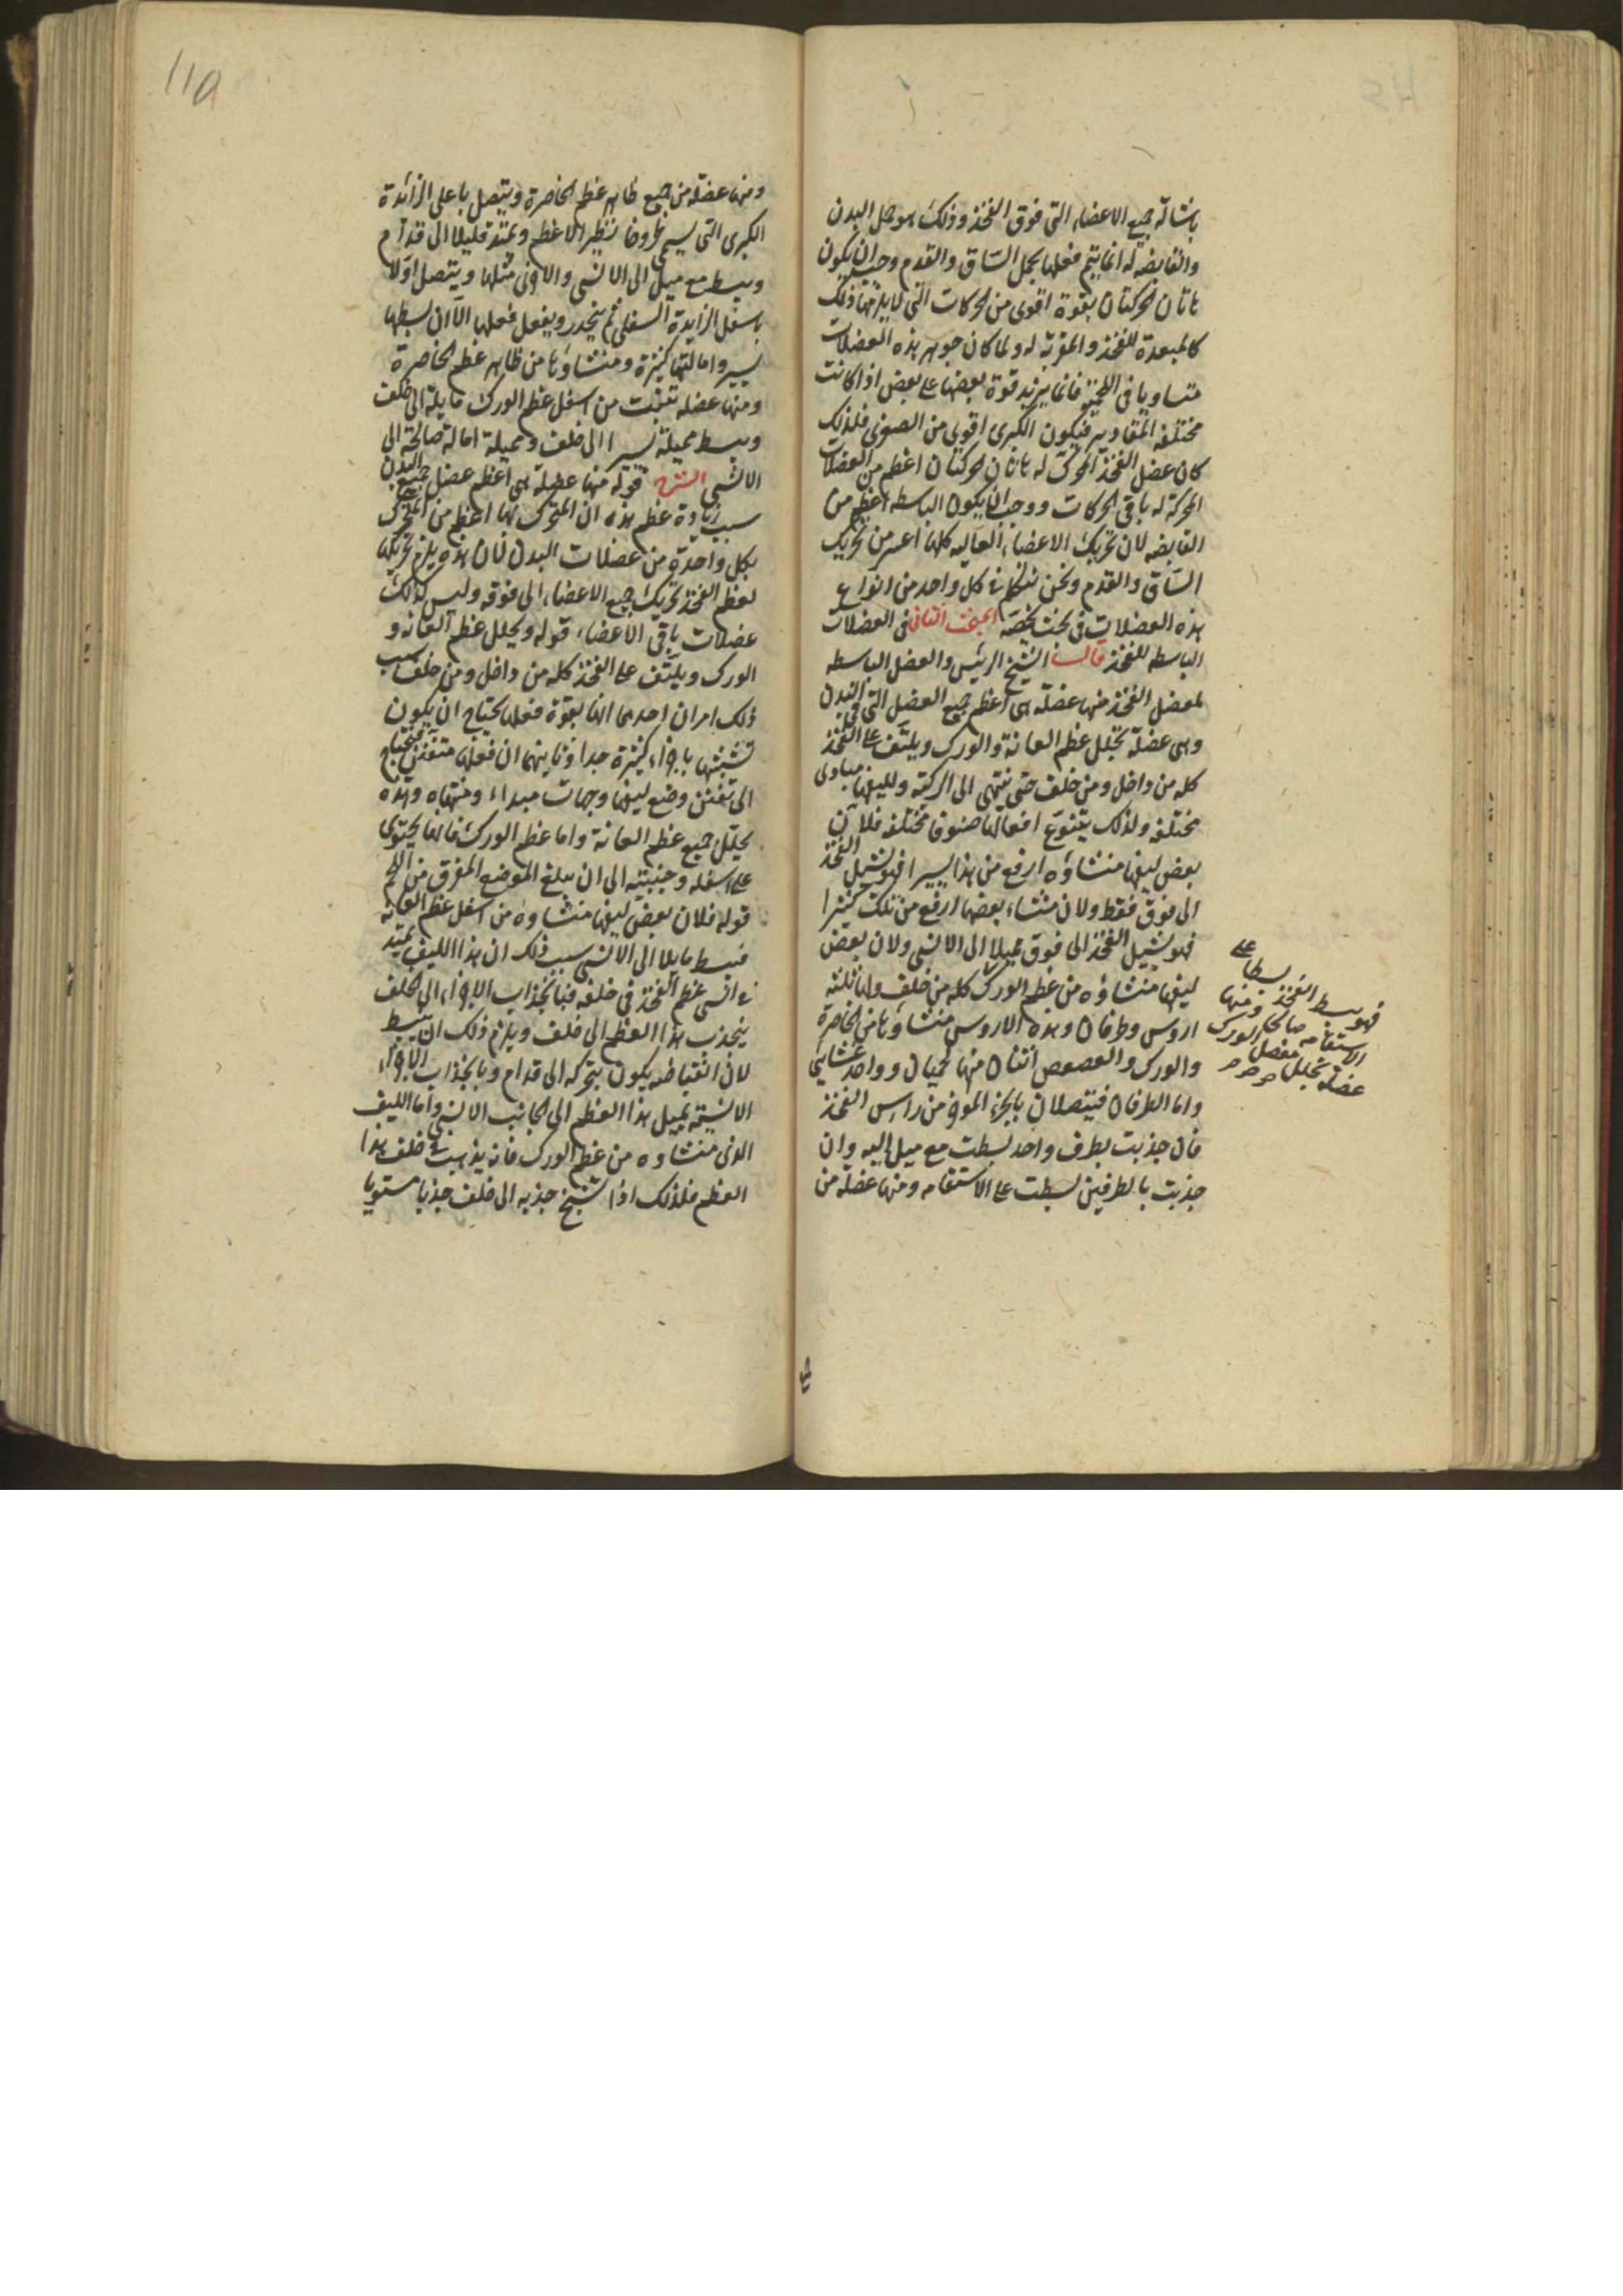 باشالة جميع الاعضاء التى فوق الفخذ وذلك هو حمل البدن
والقابضة له انما يتم فعلها بحمل الساق والقدم وجب ان يكون
هاتان الحركتان بقوة اقوى من الحركات التى لا يلزمها ذلك
كالمبعدة للفخذ والمقربة له ولما كان جوهر هذه العضلات
متساويا فى اللحمية فانما يزيد قوة بعضها على بعض اذا كانت
مختلفة المقادير فيكون الكبرى اقوى من الصغرى فلذلك
كان عضل الفخذ المحرك له هاتان الحركتان اعظم من العضلات
المحركة له باقى الحركات ووجب ان يكون الباسطة اعظم من
القابضة لان تحريك الاعضاء العاليه كلها اعسر من تحريك
الساق والقدم ونحن نتكلم فى كل واحد من انواع
هذه العضلات فى بحث يخصه البحث الثانى فى العضلات
الباسطه للفخذ قال الشيخ الرئيس والعضل الباسطه
لمفصل الفخذ منها عضلة هى اعظم جميع العضل التى فى البدن
وهى عضلة تجلل عظم العانة والورك ويلتف على الفخذ
كله من داخل ومن خلف حتى تنتهى الى الركبة ولليفها مبادى
مختلفه ولذلك يتنوع افعالها صنوفا مختلفه فلان
بعض ليفها منشاؤه ارفع من هذا يسيرا فهو يشيل الفخذ
الى فوق فقط ولان منشاء بعضها ارفع من تلك كثيرا
فهو يشيل الفخذ الى فوق مميلا الى الانسى ولان بعض
ليفها منشاؤه من عظم الورك كله من خلف ولها ثلثة
اروس وطرفان وهذه الاروس منشاؤها من الخاصرة
والورك والعصعص اثنان منها لحميان وواحد غشايى
واما الطرفان فيتصلان بالجزء الموخر من راس الفخذ
فان جذبت بطرف واحد بسطت مع ميل اليه وان
جذبت بالطرفين بسطت على الاستقامه ومنها عضلة من
فهو يبسط الفخذ بسطا على
الاستقامه صالحا ومنها
عضلة تجلل مفصل الورك
ومنها عضلة من جميع ظاهر عظم الخاصرة ويتصل باعلى الزائدة
الكبرى التى يسمى طروخانطير الاعظم ويمتد قليلا الى قدام
ويبسط مع ميل الى الانسى والاخرى مثلها ويتصل اولا
باسفل الزايدة السفلى ثم ينحدر ويفعل فعلها الا ان بسطها
يسير وامالتها كثيرة ومنشاؤها من ظاهر عظم الخاصرة
ومنها عضلة تنبت من اسفل عظم الورك مايلة الى خلف
ويبسط مميلة يسيرا الى خلف ومميلة امالة صالحة الى
الانسى الشرح قوله منها عضلة هى اعظم عضل جميع البدن
سبب زيادة عظم هذه ان المتحرك بها اعظم من المتحرك
بكل واحدة من عضلات البدن فان هذه يلزم تحريكها
لعظم الفخذ تحريك جميع الاعضاء الى فوقه وليس كذلك
عضلات باقى الاعضاء قوله ويجلل عظم العانه و
الورك ويلتف على الفخذ كله من داخل ومن خلف سبب
ذلك امران احدهما انها بقوة فعلها يحتاج ان يكون
تشبثها باجزاء كثيرة جدا وثانيهما ان فعلها متفنن فيحتاج
الى تفنن وضع ليفها وجهات مبداه ومنتهاه وهذه
يجلل جميع عظم العانة واما عظم الورك فانها يحتوى
على اسفله وجنبيته الى ان يبلغ الموضع المفرق من اللحم
قوله فلان بعض ليفها منشاوه من اسفل عظم العانه
فيبسط مايلا الى الانسى سبب ذلك ان هذا الليف يمتد
فى انسى عظم الفخذ فى خلفه فبانجذاب الاجزاء الى الخلف
ينجذب هذا العظم الى خلف ويلزم ذلك ان ينبسط
لان انقباضه يكون بتحركه الى قدام وبانجذاب الاجزاء
الانسية يميل هذا العظم الى الجانب الانسى واما الليف
الذى منشاوه من عظم الورك فانه يذهب فى خلف هذا
العظم فلذلك اذا تشنج جذبه الى خلف جذبا مستويا